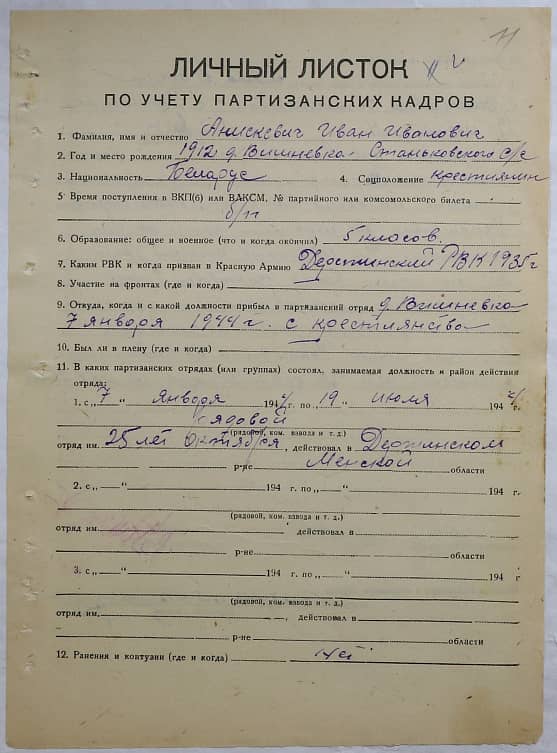 11
ЛИЧНЫЙ ЛИСТОК
ПО УЧЕТУ ПАРТИЗАНСКИХ КАДРОВ
1. Фамилия, имя и отчество Анискевич Иван Иванович
2. Год и место рождения 1912 д. Вишневка Станьковского с/с
3. Национальность Беларус 4. Соцположение крестиянин
5. Время поступления в ВКП(б) или ВЛКСМ, № партийного или комсомольского билета
б/п
6. Образование: общее и военное (что и когда окончил) 5 класов.
7. Каким РВК и когда призван в Красную Армию Держинский РВК 1935 г
8. Участие на фронтах (где и когда)
9. Откуда, когда и с какой должности прибыл в партизанский отряд д. Вишневка
7 января 1944 г. с крестиянства
10. Был ли в плену (где и когда)
11. В каких партизанских отрядах (или группах) состоял, занимаемая должность и район действия
отряда:
1. с „7“ января 1944 г. по „19“ июля 1944 г.
рядовой
(рядовой, ком. взвода и т. д.)
отряд им. 25 лет Октября, действовал в Держинском
р-не Менской области
2. с „ “ 194 г. по „ “ 194 г.
(рядовой, ком. взвода и т. д.)
отряд им. действовал в
р-не области
3. с „ “ 194 г. по „ “ 194 г
(рядовой, ком. взвода и т. д.)
отряд им. , действовал в
р-не области
12. Ранения и контузии (где и когда) Нет